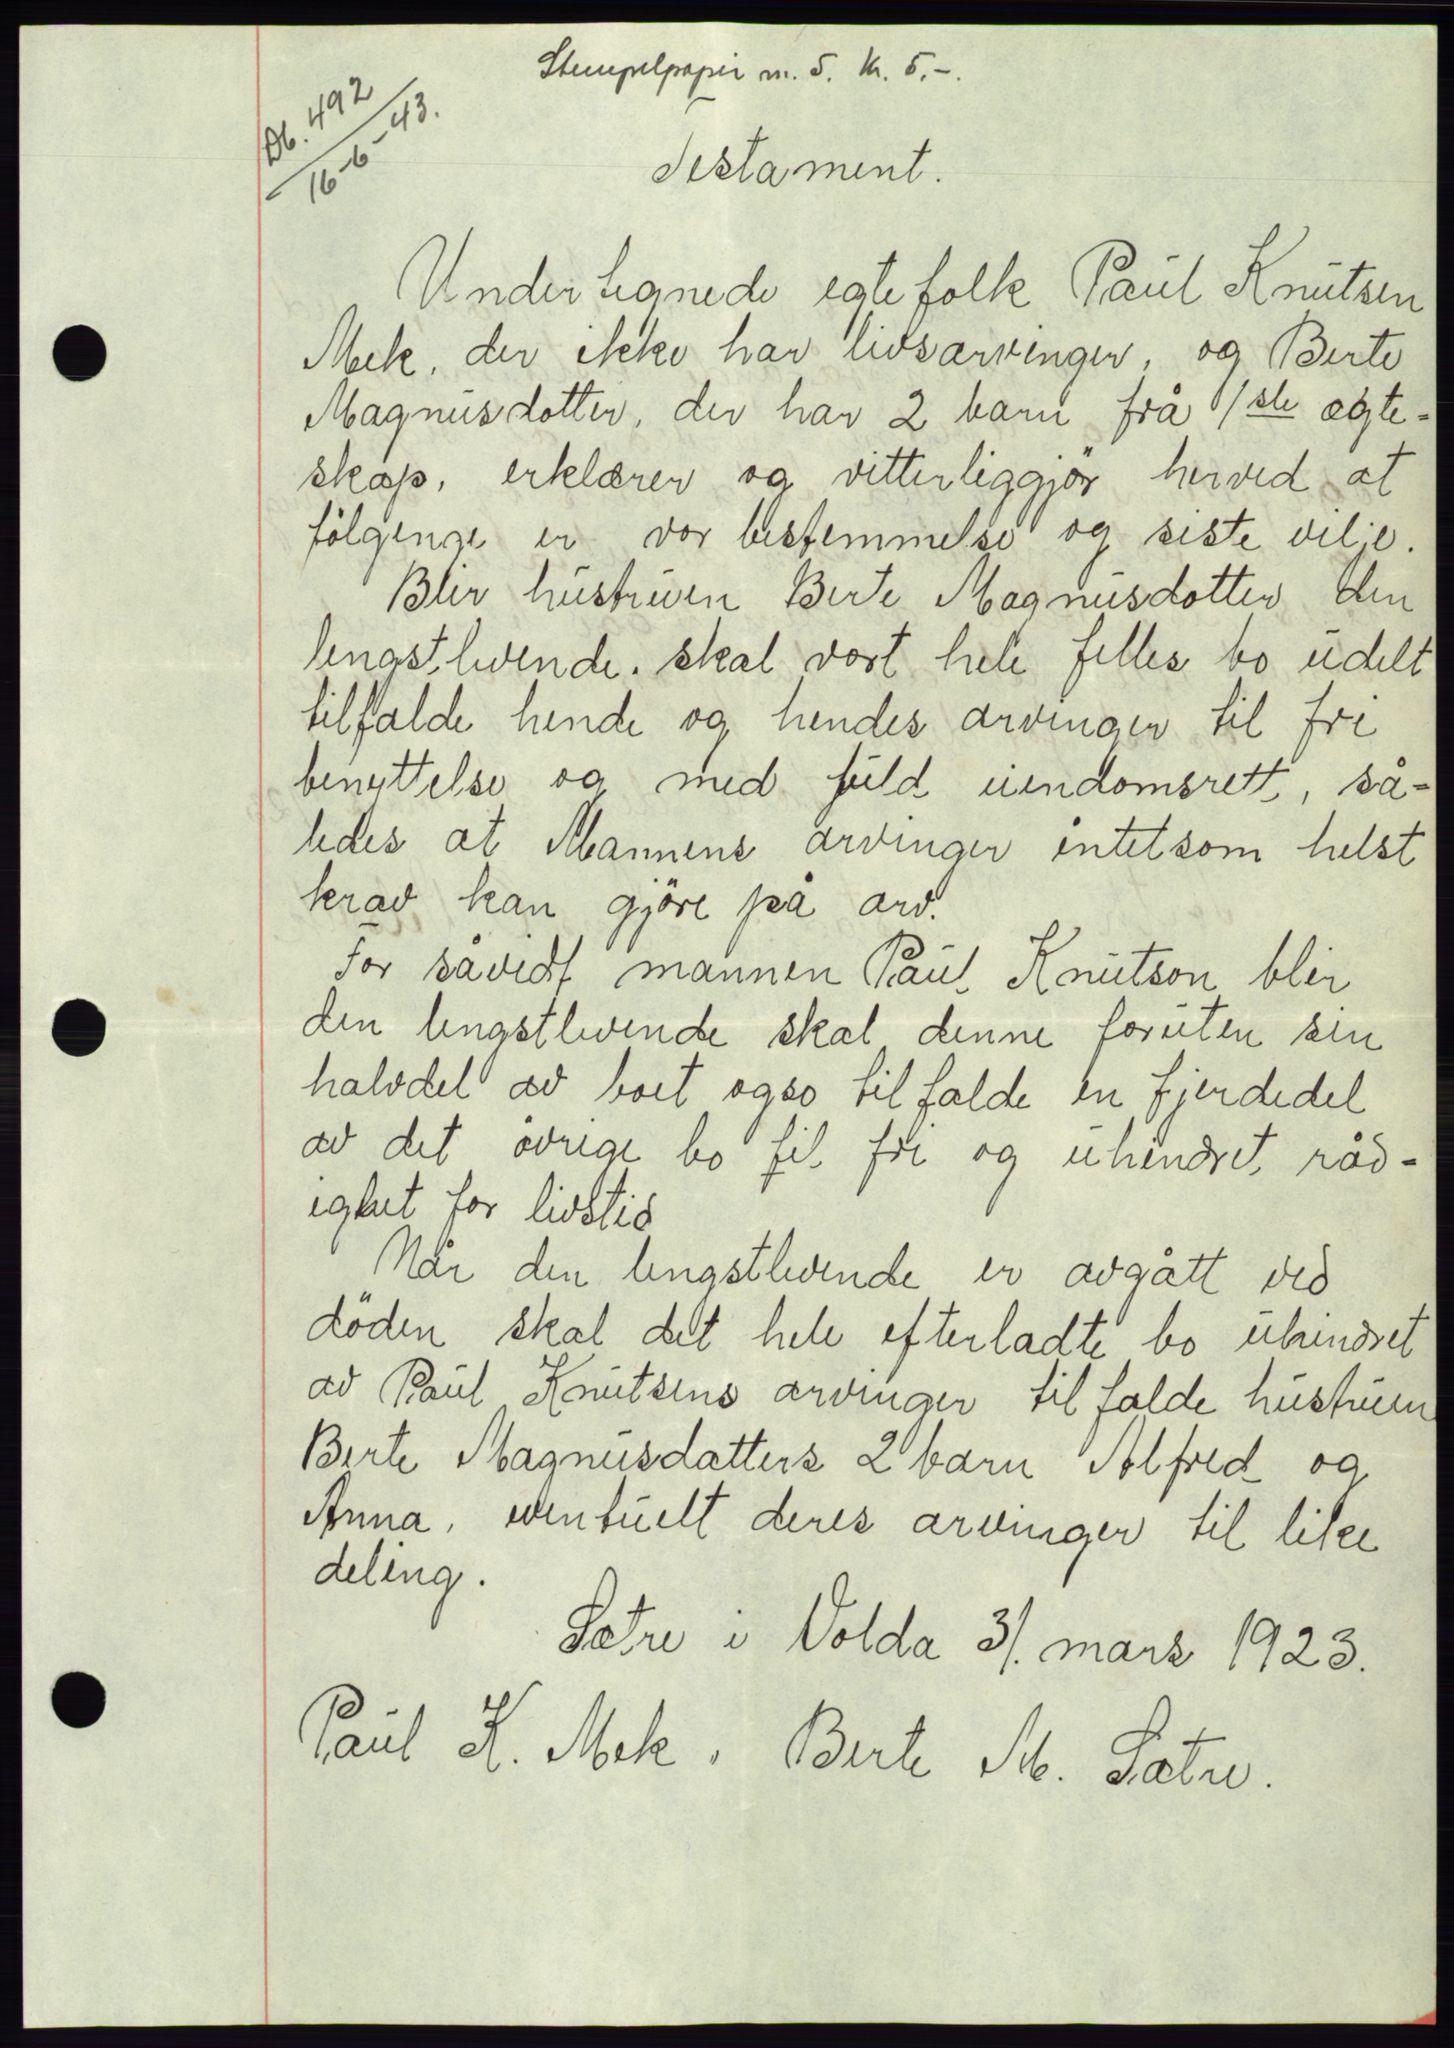 Stempelpapir m. 5. Kr. 5.-.
Db. 492
16-6-43.
Testament.
Undertegnede egtefolk Paul Knutsen
Mek, der ikke har livsarvinger, og Berte
Magnusdotter, der har 2 barn frå 1ste ægte-
skap, erklærer og vitterliggjör herved at
fölgenge er vor bestemmelse og siste vilje.
Blir hustruen Berte Magnusdotter den
lengstlevende. skal vort hele felles bo udelt
tilfalde hende og hendes arvinger til fri
benyttelse og med fuld eiendomsrett, så-
ledes at Mannens arvinger intetsom helst
krav kan gjöre på arv.
For såvidt mannen Paul Knutson blir
den lengstlevende skal denne foruten sin
halvdel av boet ogso tilfalde en fjerdedel
av det övrige bo til fri og uhindret råd-
ighet for livstid
Når den lengstlevende er avgått ved
döden skal det hele efterladte bo uhindret
av Paul Knutsens arvinger tilfalde hustruen
Berte Magnusdatters 2 barn Alfred og
Anna, eventuelt deres arvinger til like
deling.
Sætre i Volda 3/. mars 1923.
Paul K. Mek. Berte M. Sætre.